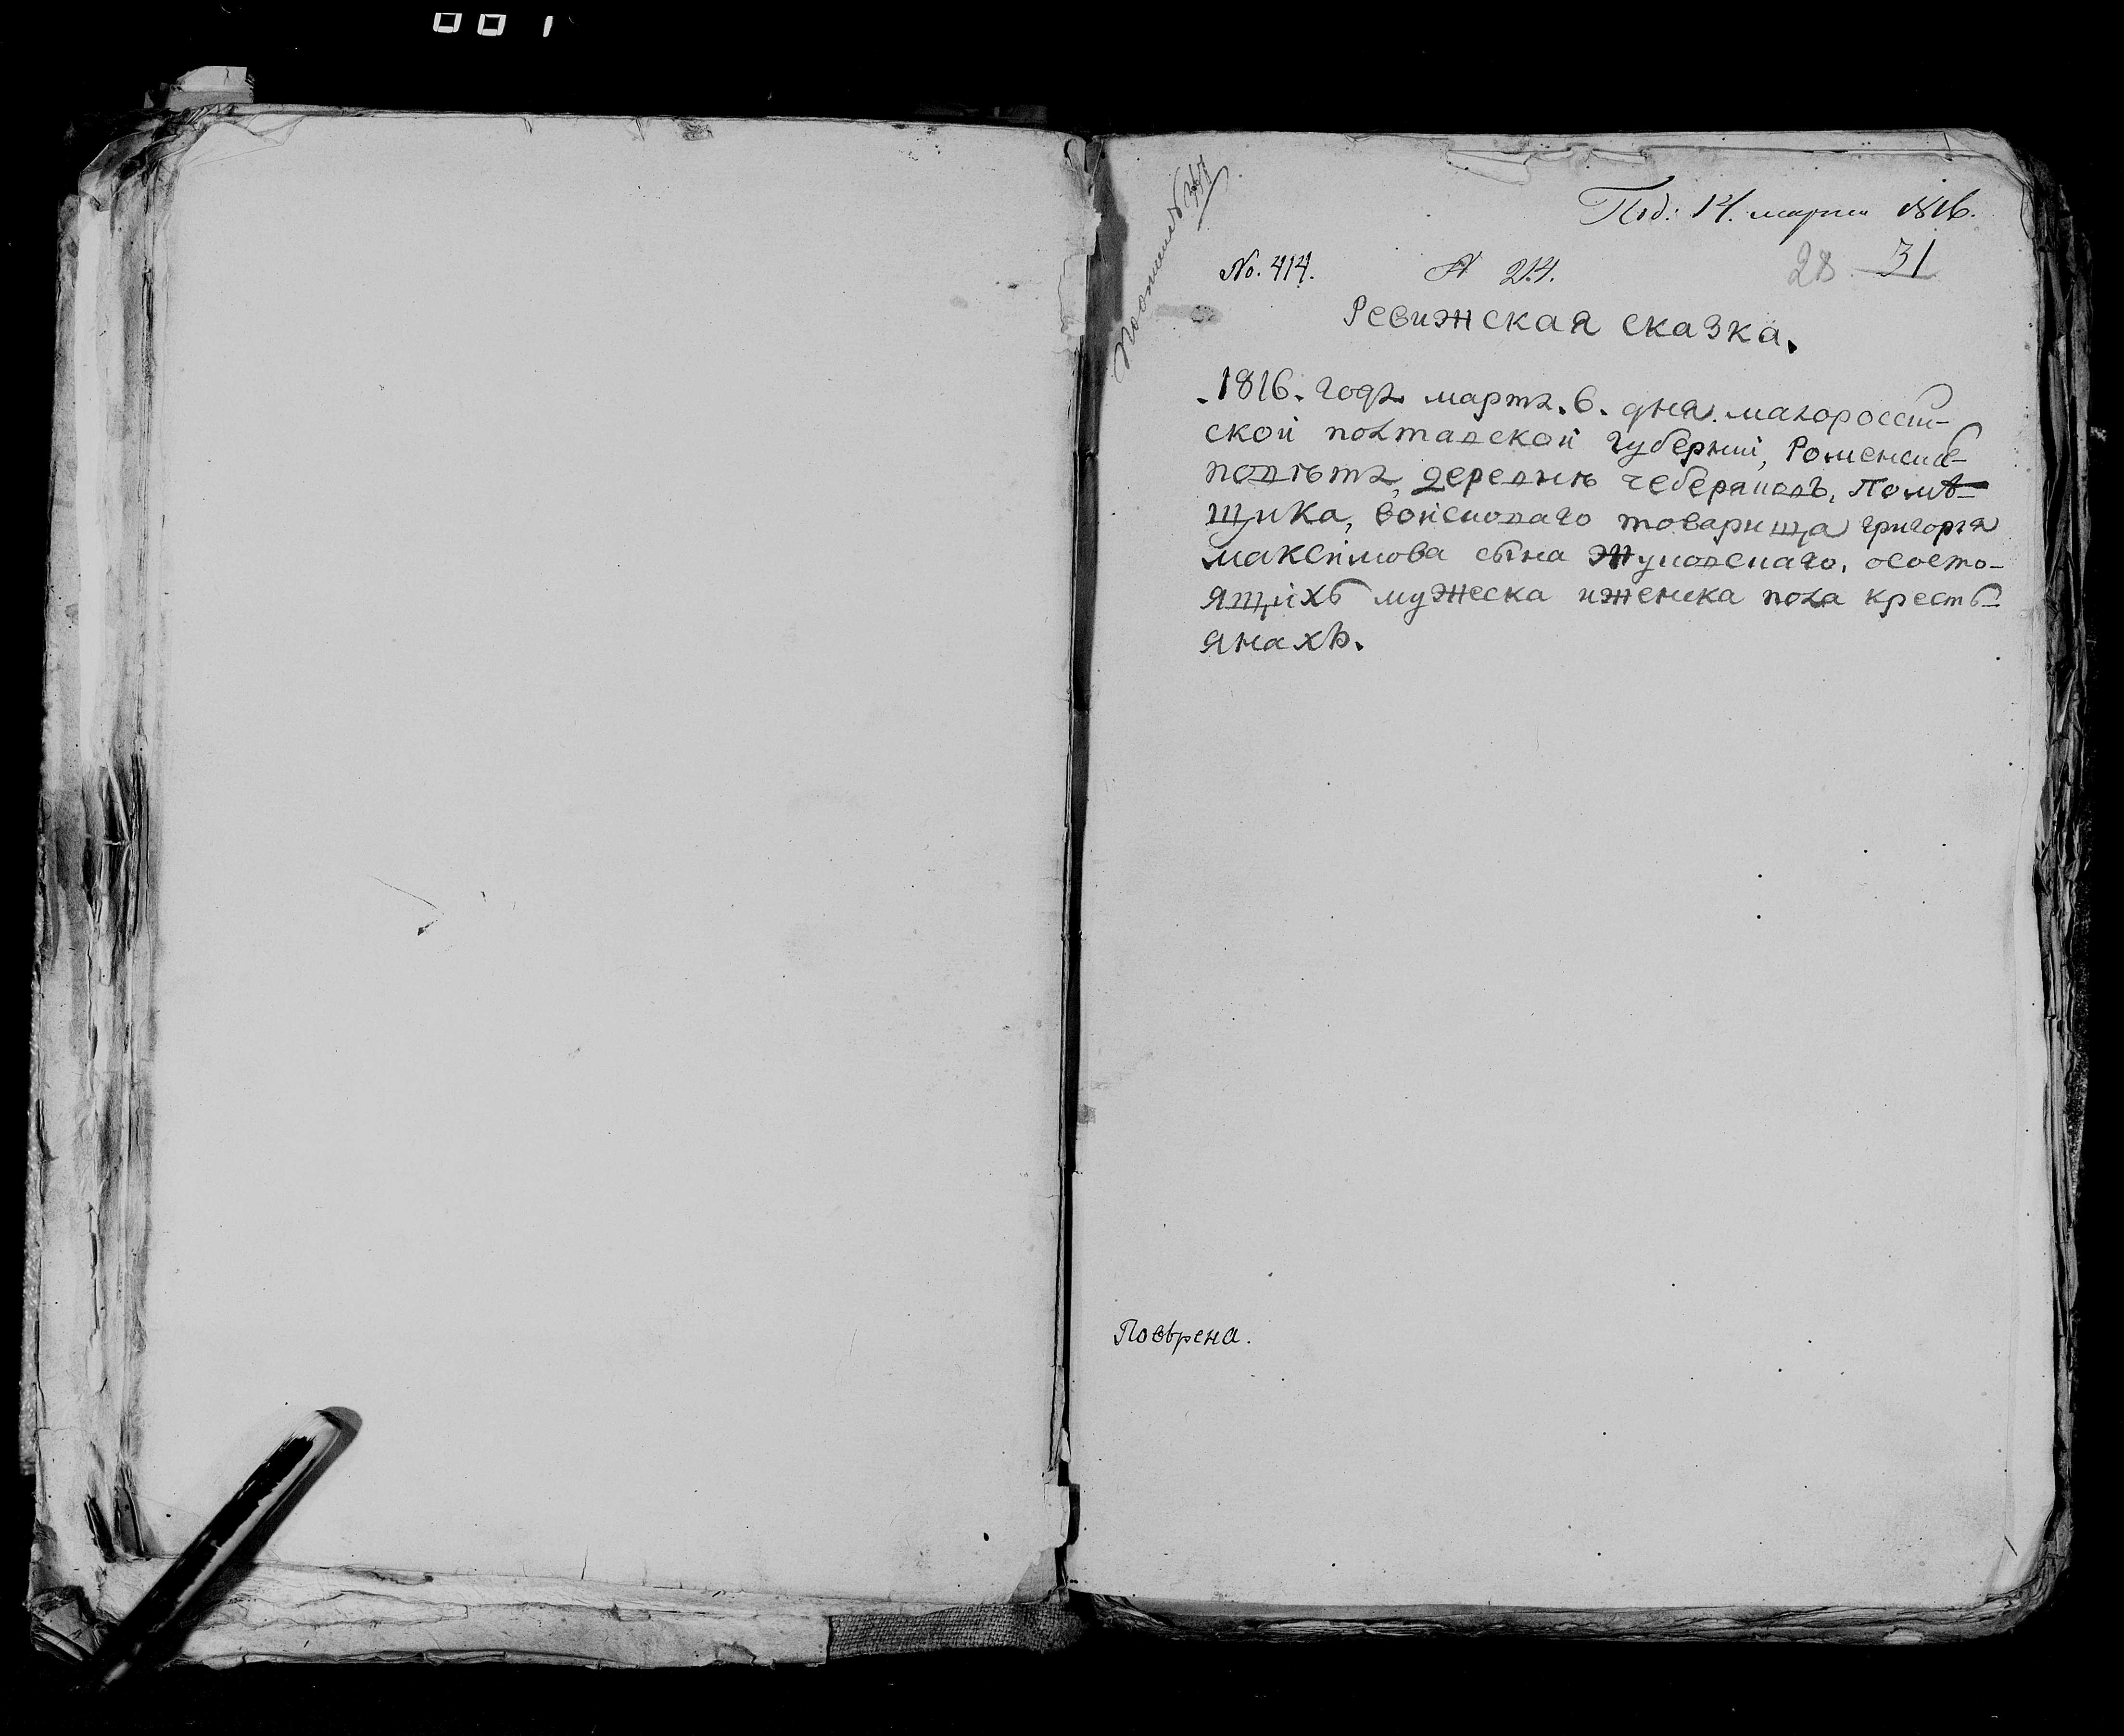 001
Под: 14. марта 1816.
No. 414. № 214. 28 31
Ревижская сказка.
1816. года марта. 6. дня. малоросси-
ской полтавской губернии, Роменскаг
повѣта, деревнѣ чеберяковъ, Помѣ-
щика, войсковаго товарища григория
максимова сына Жуковскаго, ососто-
ящихъ мужеска иженска пола кресть-
янахъ.
Повѣрена.